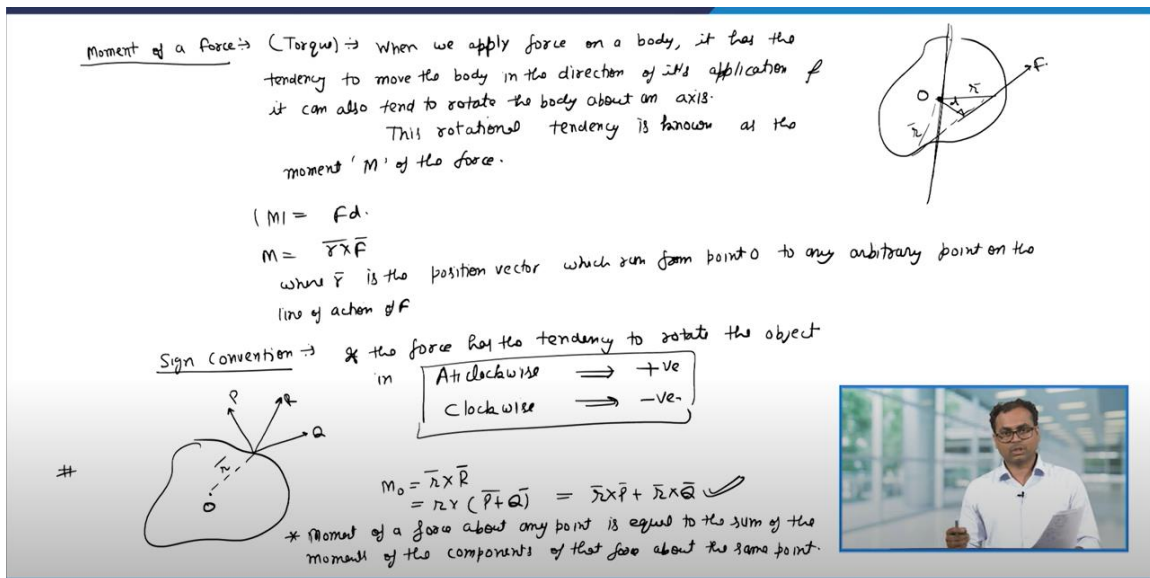 Moment of a force :→ (Torque) :→ When we apply force on a body, it has the
tendency to move the body in the direction of it's application &
it can also tend to rotate the body about an axis.
This rotational tendency is known as the
moment 'M' of the force.
O
r̄
d
F.
r̄
|M| = Fd.
M = r̄ × F̄
where r̄ is the position vector which run from point O to any arbitrary point on the
line of action of F
Sign Convention :→ * the force has the tendency to rotate the object
in
Aticlockwise ⟹ +ve
Clockwise ⟹ -ve.
#
P
R
Q
r̄
O
M₀ = r̄ × R̄
= r × (P̄ + Q̄) = r̄ × P̄ + r̄ × Q̄ ✓
* Moment of a force about any point is equal to the sum of the
moments of the components of that force about the same point.